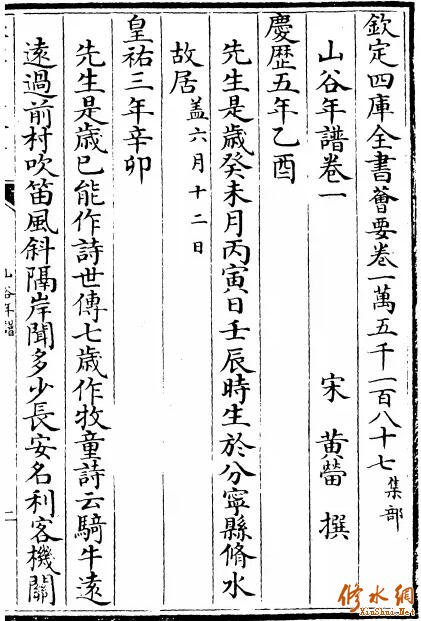 欽定四庫全書薈要卷一萬五千一百八十七 集部
山谷年譜卷一
宋 黃㽦 撰
慶歴五年乙酉
先生是歲癸未月丙寅日壬辰時生於分寧縣脩水
故居 盖六月十二日
皇祐三年辛卯
先生是歲已能作詩世傳七歲作牧童詩云騎牛逺
逺過前村吹笛風斜隔岸聞多少長安名利客機關
山谷年譜
修水網
XiuShui.Net